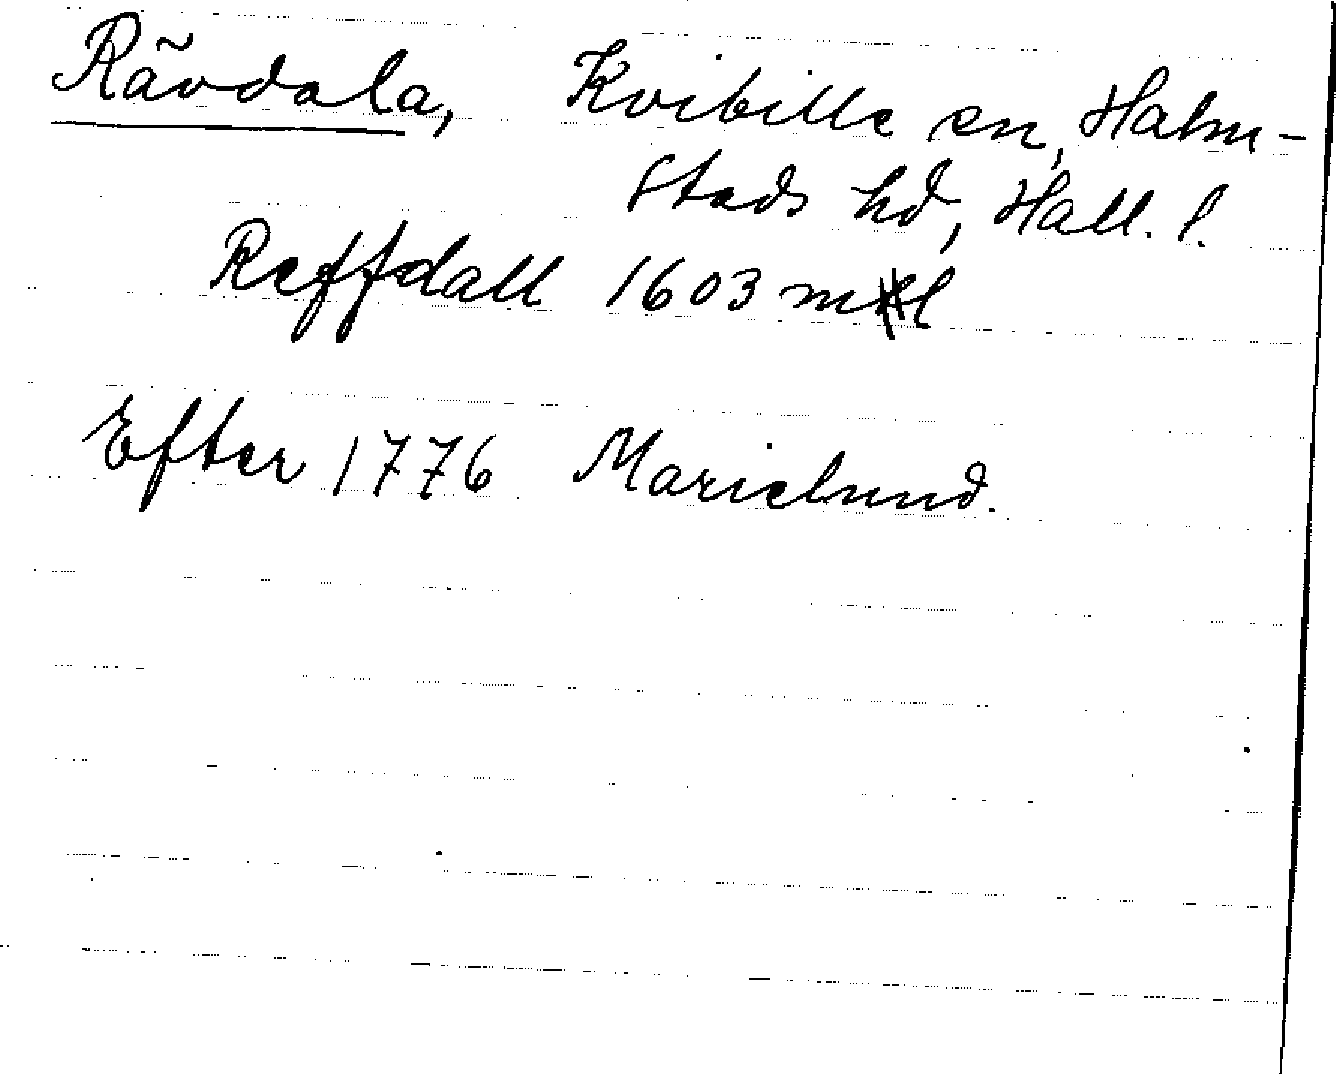 Rävdala, Kvibille sn, Halm-
stads hd, Hall. l.
Reffdall 1603 ml
Efter 1776 Marielund.